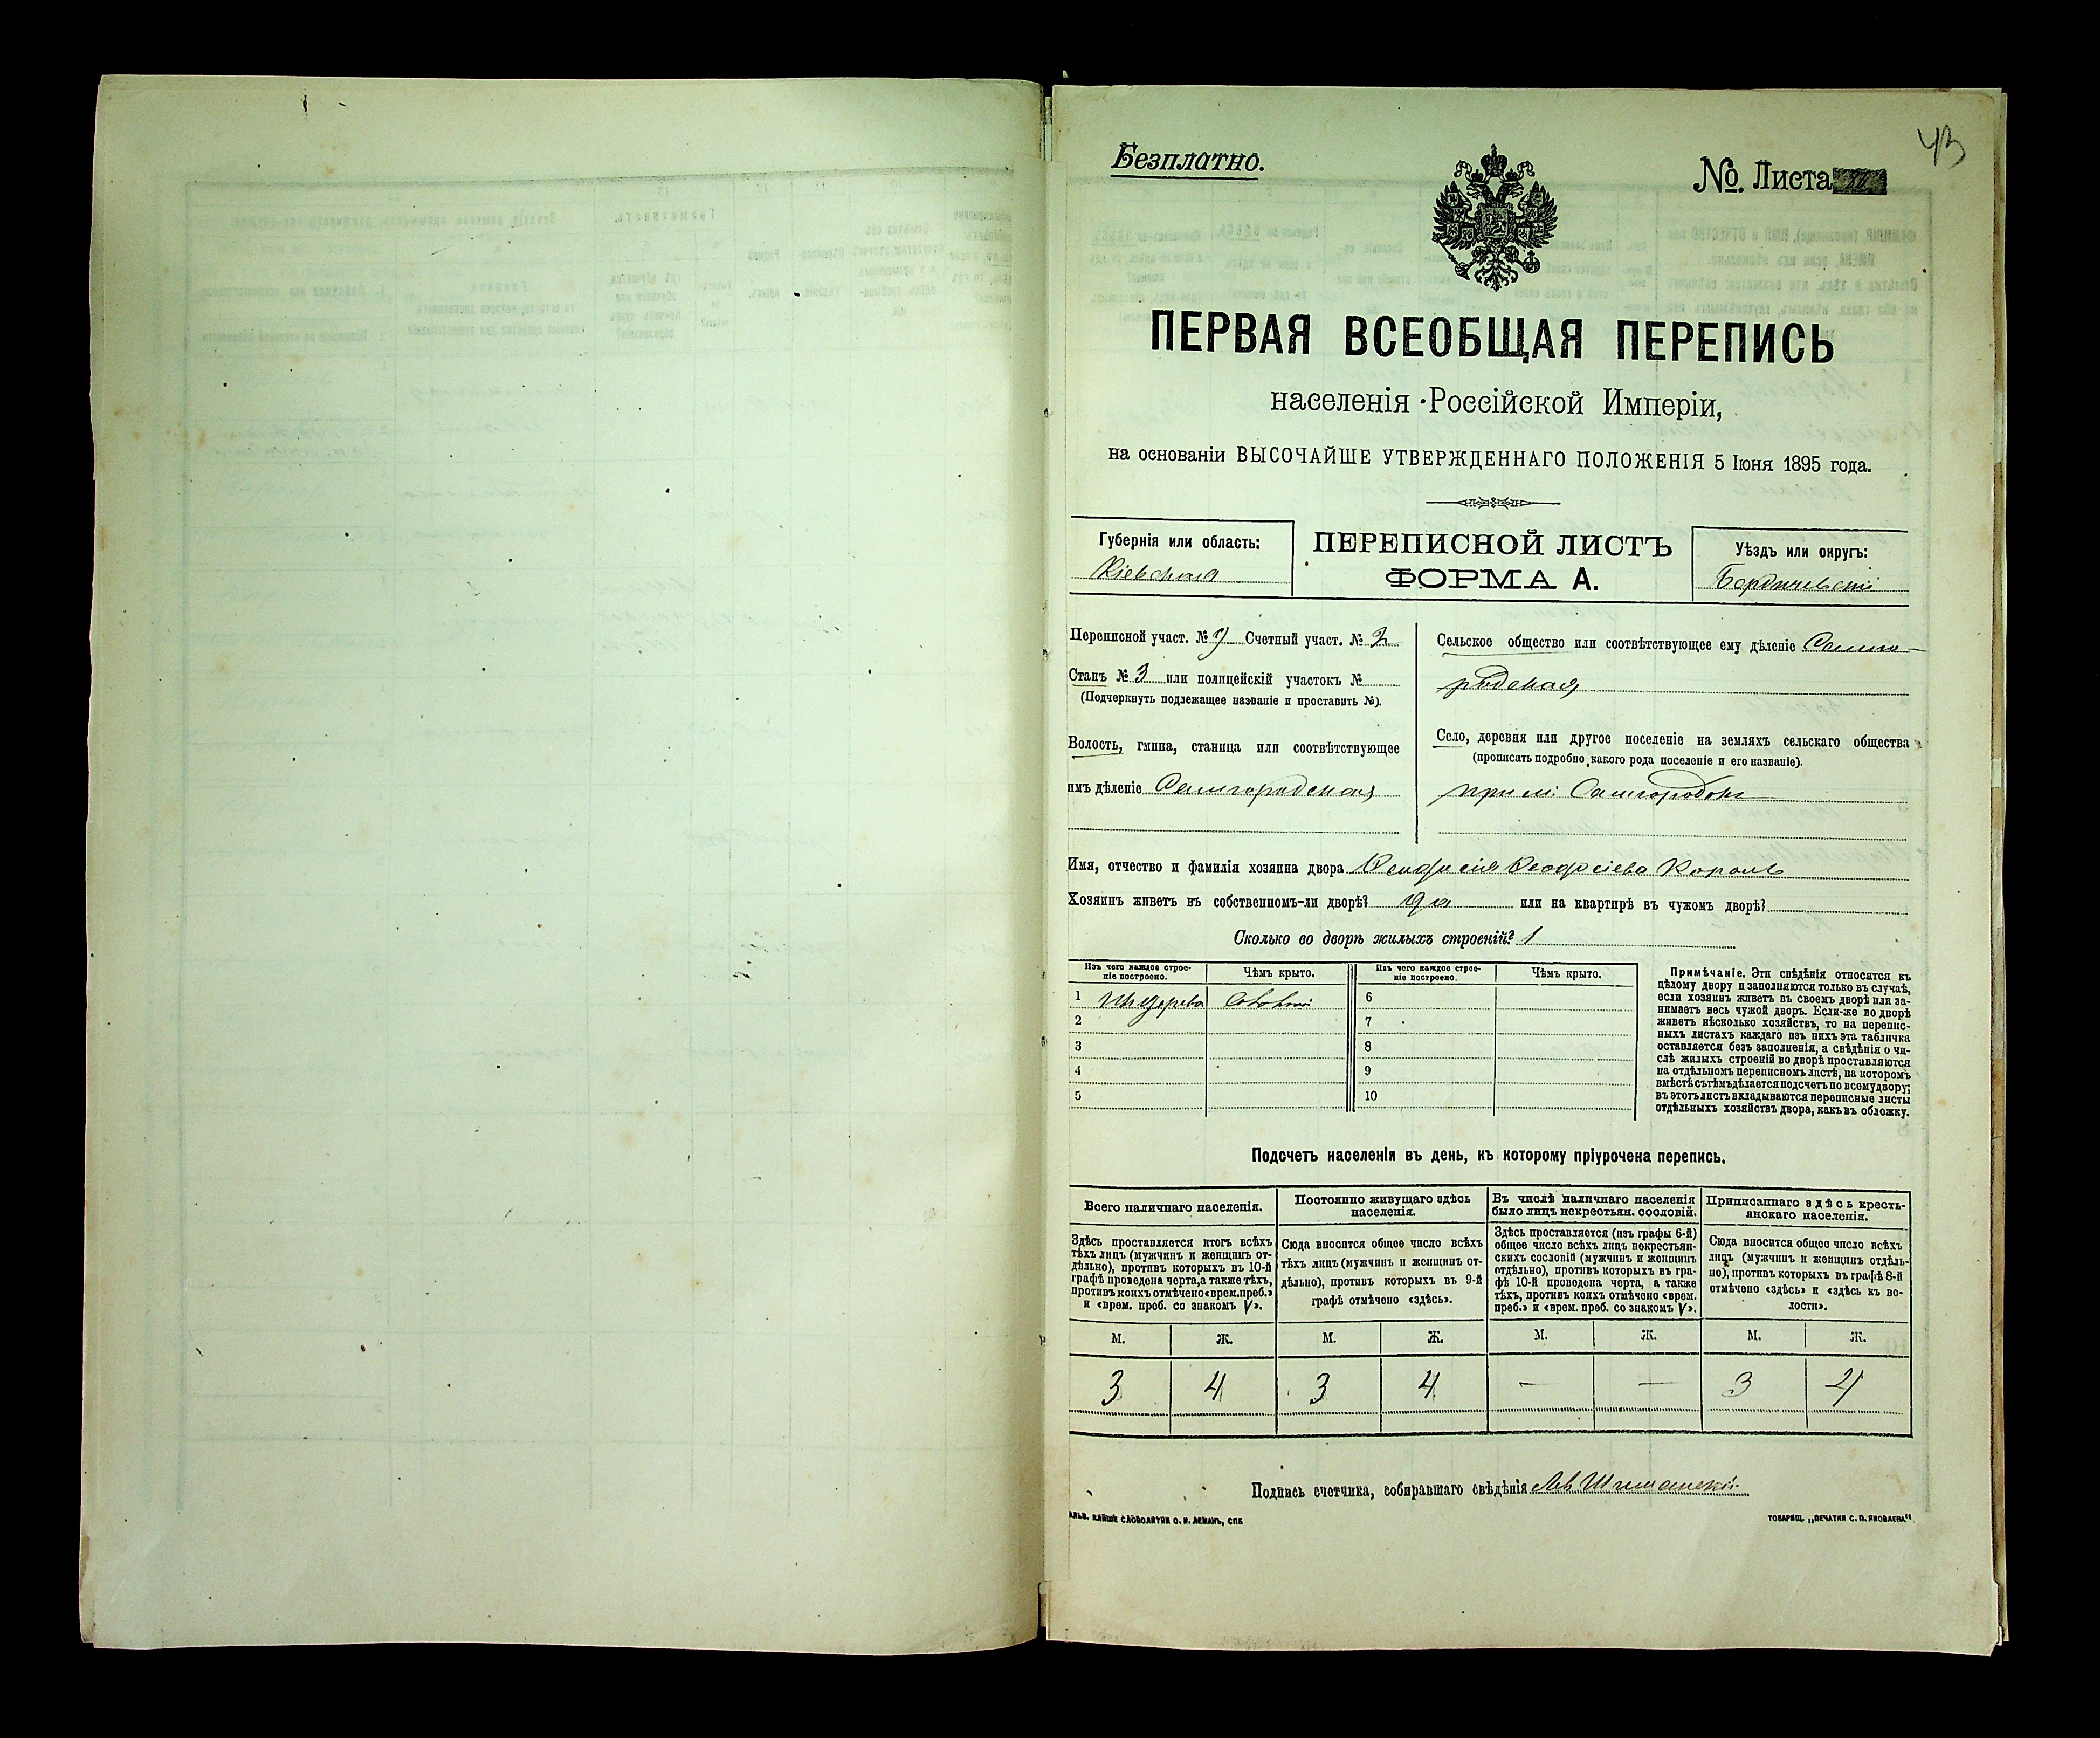 43
Безплатно.
№. Листа
ПЕРВАЯ ВСЕОБЩАЯ ПЕРЕПИСЬ
населенія Россійской Имперіи,
на основаніи ВЫСОЧАЙШЕ УТВЕРЖДЕННАГО ПОЛОЖЕНІЯ 5 Іюня 1895 года.
Губернія или область:
Кіевская
ПЕРЕПИСНОЙ ЛИСТЪ
ФОРМА А.
Уѣздъ или округъ:
Бердичевскій
Переписной участ. № Счетный участ. № 2
Станъ № 3 или полицейскій участокъ №
(Подчеркнуть подлежащее названіе и проставить №).
Волость, гмина, станица или соотвѣтствующее
имъ дѣленіе Самгородская
Сельское общество или соотвѣтствующее ему дѣленіе Самго-
родская
Село, деревня или другое поселеніе на земляхъ сельскаго общества
(прописать подробно какого рода поселеніе и его названіе).
при м: Самгородокъ
Имя, отчество и фамилія хозяина двора Король
Хозяинъ живетъ въ собственномъ-ли дворѣ? да или на квартирѣ въ чужомъ дворѣ?
Сколько во дворѣ жилыхъ строеній? 1
Изъ чего каждое строе-
ніе построено.
Чѣмъ крыто.
Изъ чего каждое строе-
ніе построено.
Чѣмъ крыто.
1 изъ дерева
6
2
7
3
8
4
9
5
10
Примѣчаніе. Эти свѣдѣнія относятся къ
цѣлому двору и заполняются только въ случаѣ,
если хозяинъ живетъ въ своемъ дворѣ или за-
нимаетъ весь чужой дворъ. Если-же во дворѣ
живетъ нѣсколько хозяйствъ, то на перепис-
ныхъ листахъ каждаго изъ нихъ эта табличка
оставляется безъ заполненія, а свѣдѣнія о чи-
слѣ жилыхъ строеній во дворѣ проставляются
на отдѣльномъ переписномъ листѣ, на которомъ
вмѣстѣ съ тѣмъ дѣлается подсчетъ по всему двору;
въ этотъ листъ вкладываются переписные листы
отдѣльныхъ хозяйствъ двора, какъ въ обложку.
Подсчетъ населенія въ день, къ которому пріурочена перепись.
Всего наличнаго населенія.
Здѣсь проставляется итогъ всѣхъ
тѣхъ лицъ (мужчинъ и женщинъ от-
дѣльно), противъ которыхъ въ 10-й
графѣ проведена черта, а также тѣхъ,
противъ коихъ отмѣчено «врем. преб.»
и «врем. преб. со знакомъ V».
Постоянно живущаго здѣсь
населенія.
Сюда вносится общее число всѣхъ
тѣхъ лицъ (мужчинъ и женщинъ от-
дѣльно), противъ которыхъ въ 9-й
графѣ отмѣчено «здѣсь».
Въ числѣ наличнаго населенія
было лицъ некрестьян. сословій.
Здѣсь проставляется (изъ графы 6-й)
общее число всѣхъ лицъ некрестьян-
скихъ сословій (мужчинъ и женщинъ
отдѣльно), противъ которыхъ въ гра-
фѣ 10-й проведена черта, а также
тѣхъ, противъ коихъ отмѣчено «врем.
преб.» и «врем. преб. со знакомъ V».
Приписаннаго здѣсь кресть-
янскаго населенія.
Сюда вносится общее число всѣхъ
лицъ (мужчинъ и женщинъ отдѣль-
но), противъ которыхъ въ графѣ 8-й
отмѣчено «здѣсь» и «здѣсь къ во-
лости».
М. Ж. М. Ж. М. Ж. М. Ж.
3 4 3 4 — — 3 4
Подпись счетчика, собиравшаго свѣдѣнія
ТОВАРИЩ. „ПЕЧАТНЯ С. П. ЯКОВЛЕВА“